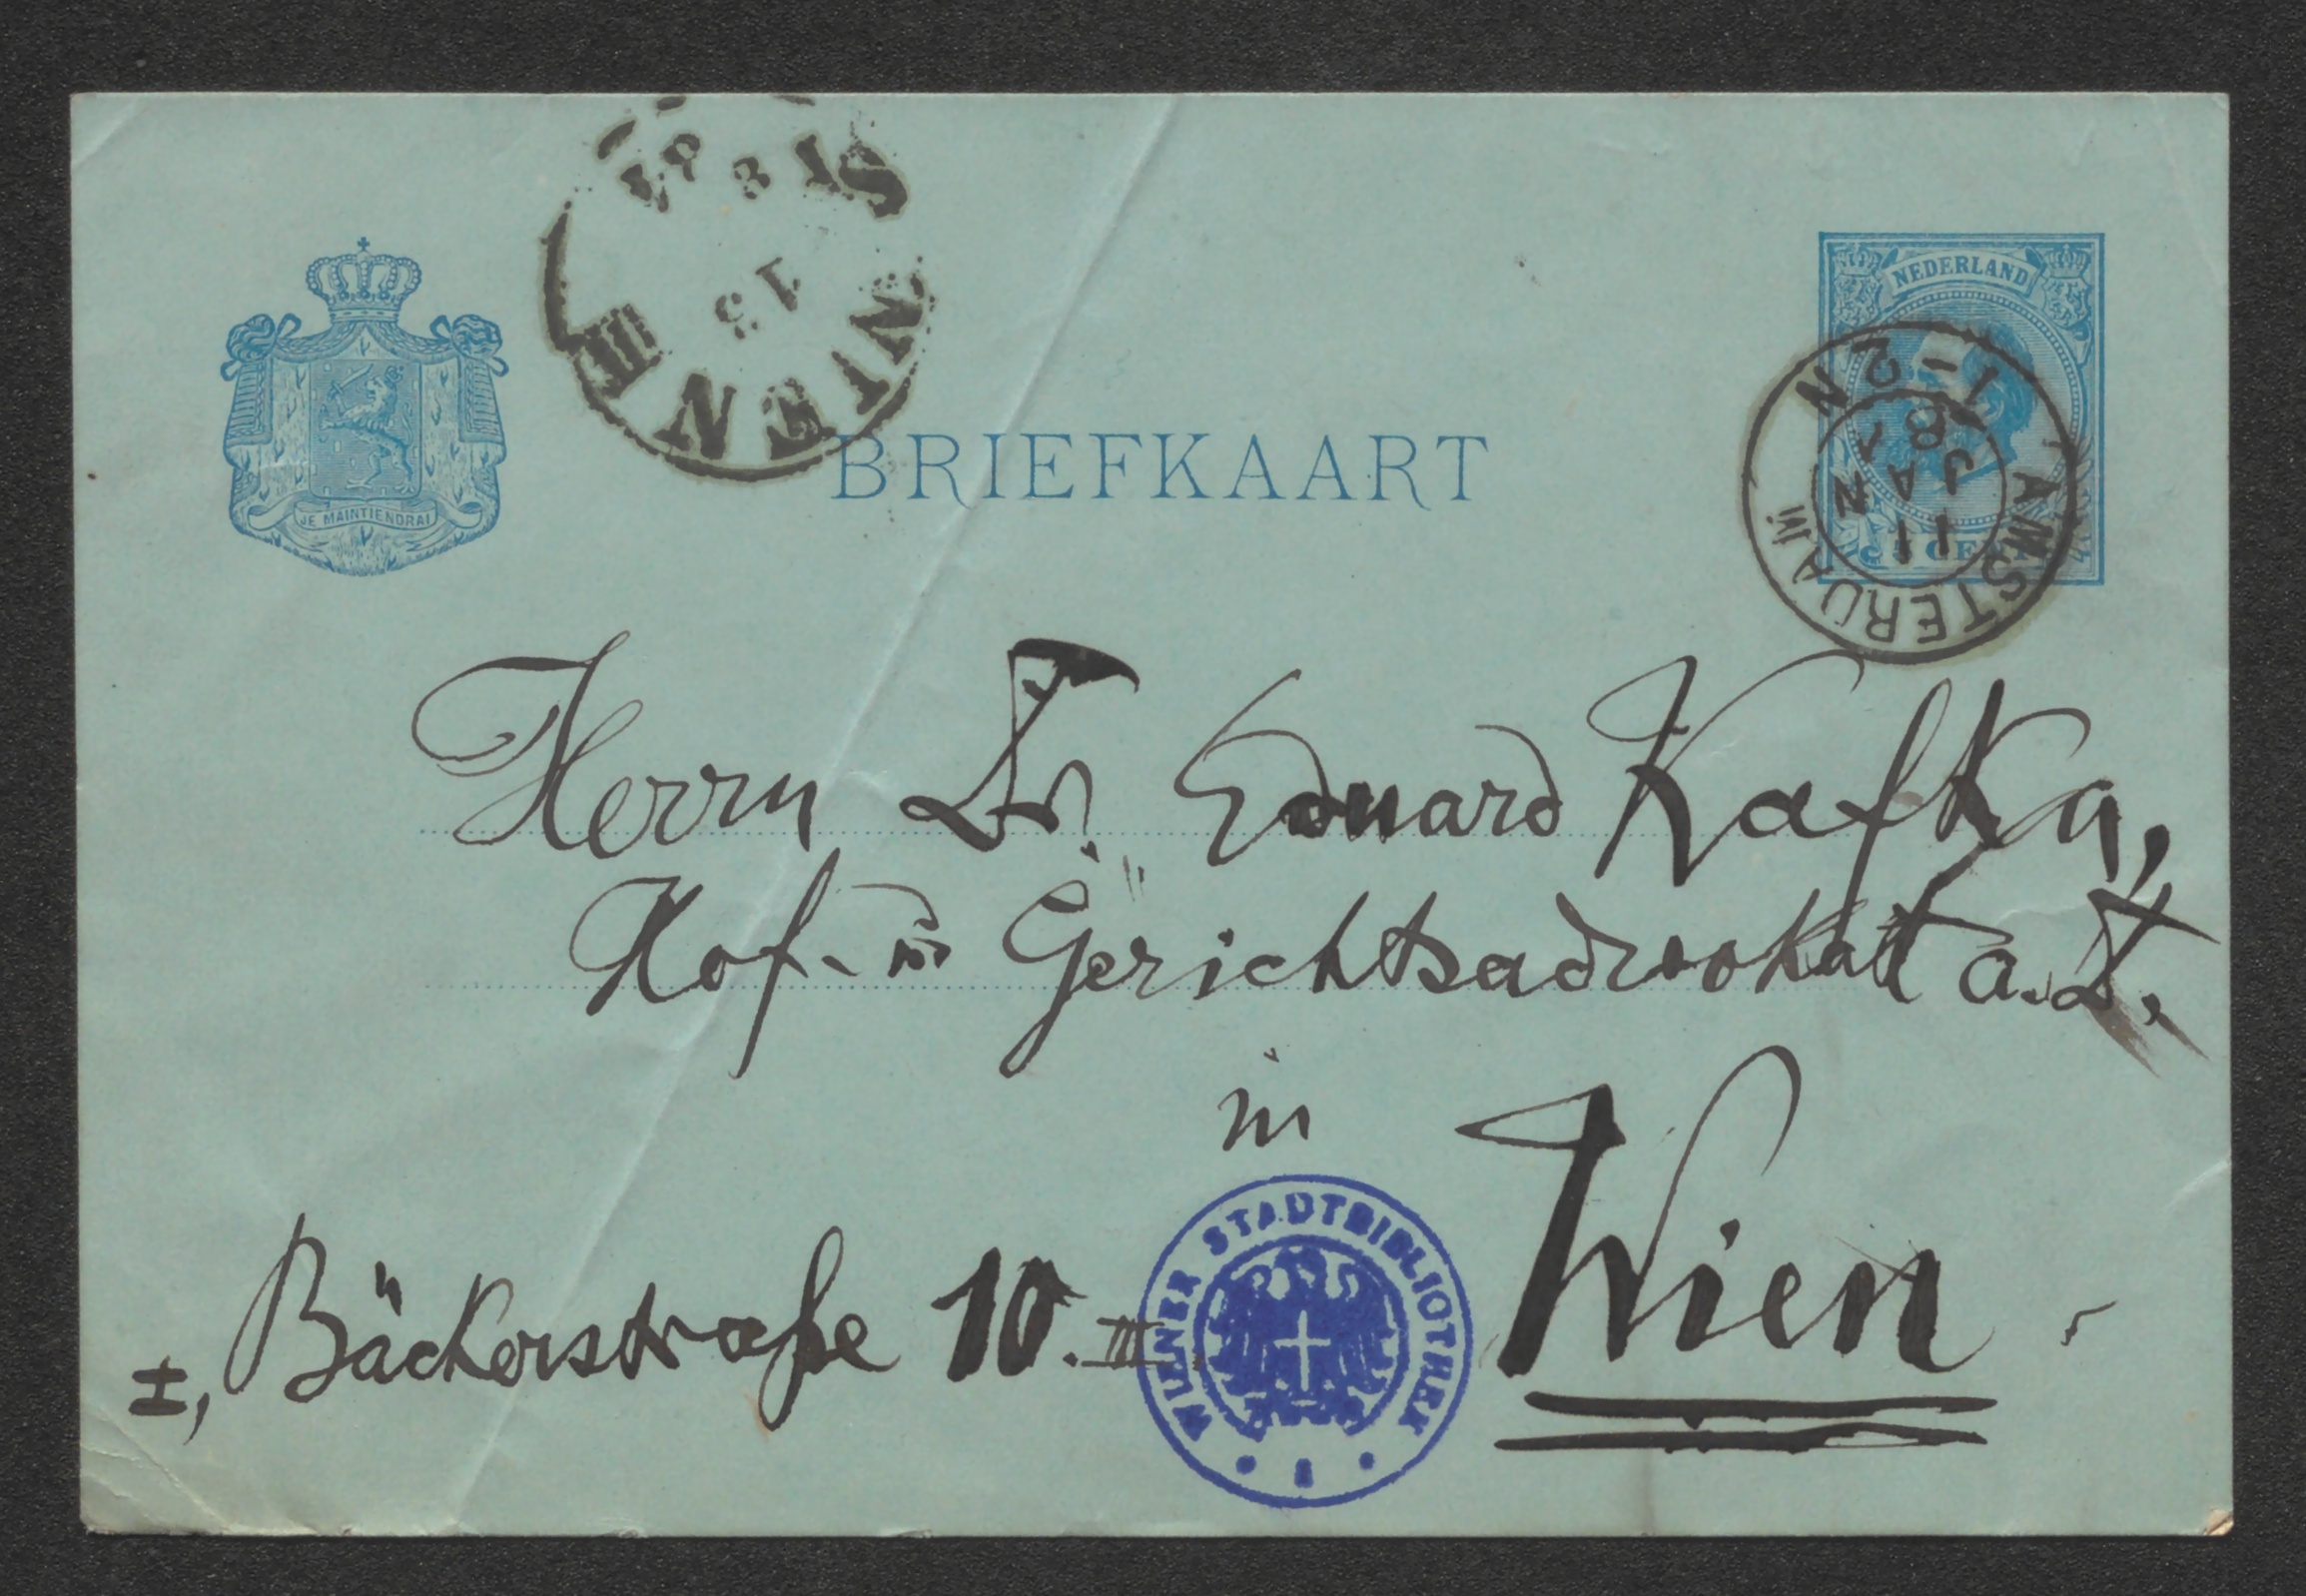 NEDERLAND
JE MAINTIENDRAI
BRIEFKAART
AMSTERDAM
1-2 N
11 JAN
13
Herrn Dr. Eduard Kafka,
Hof- u Gerichtsadvokat a. D.
in
Wien
I, Bäckerstraße 10. III.
WIENER STADTBIBLIOTHEK